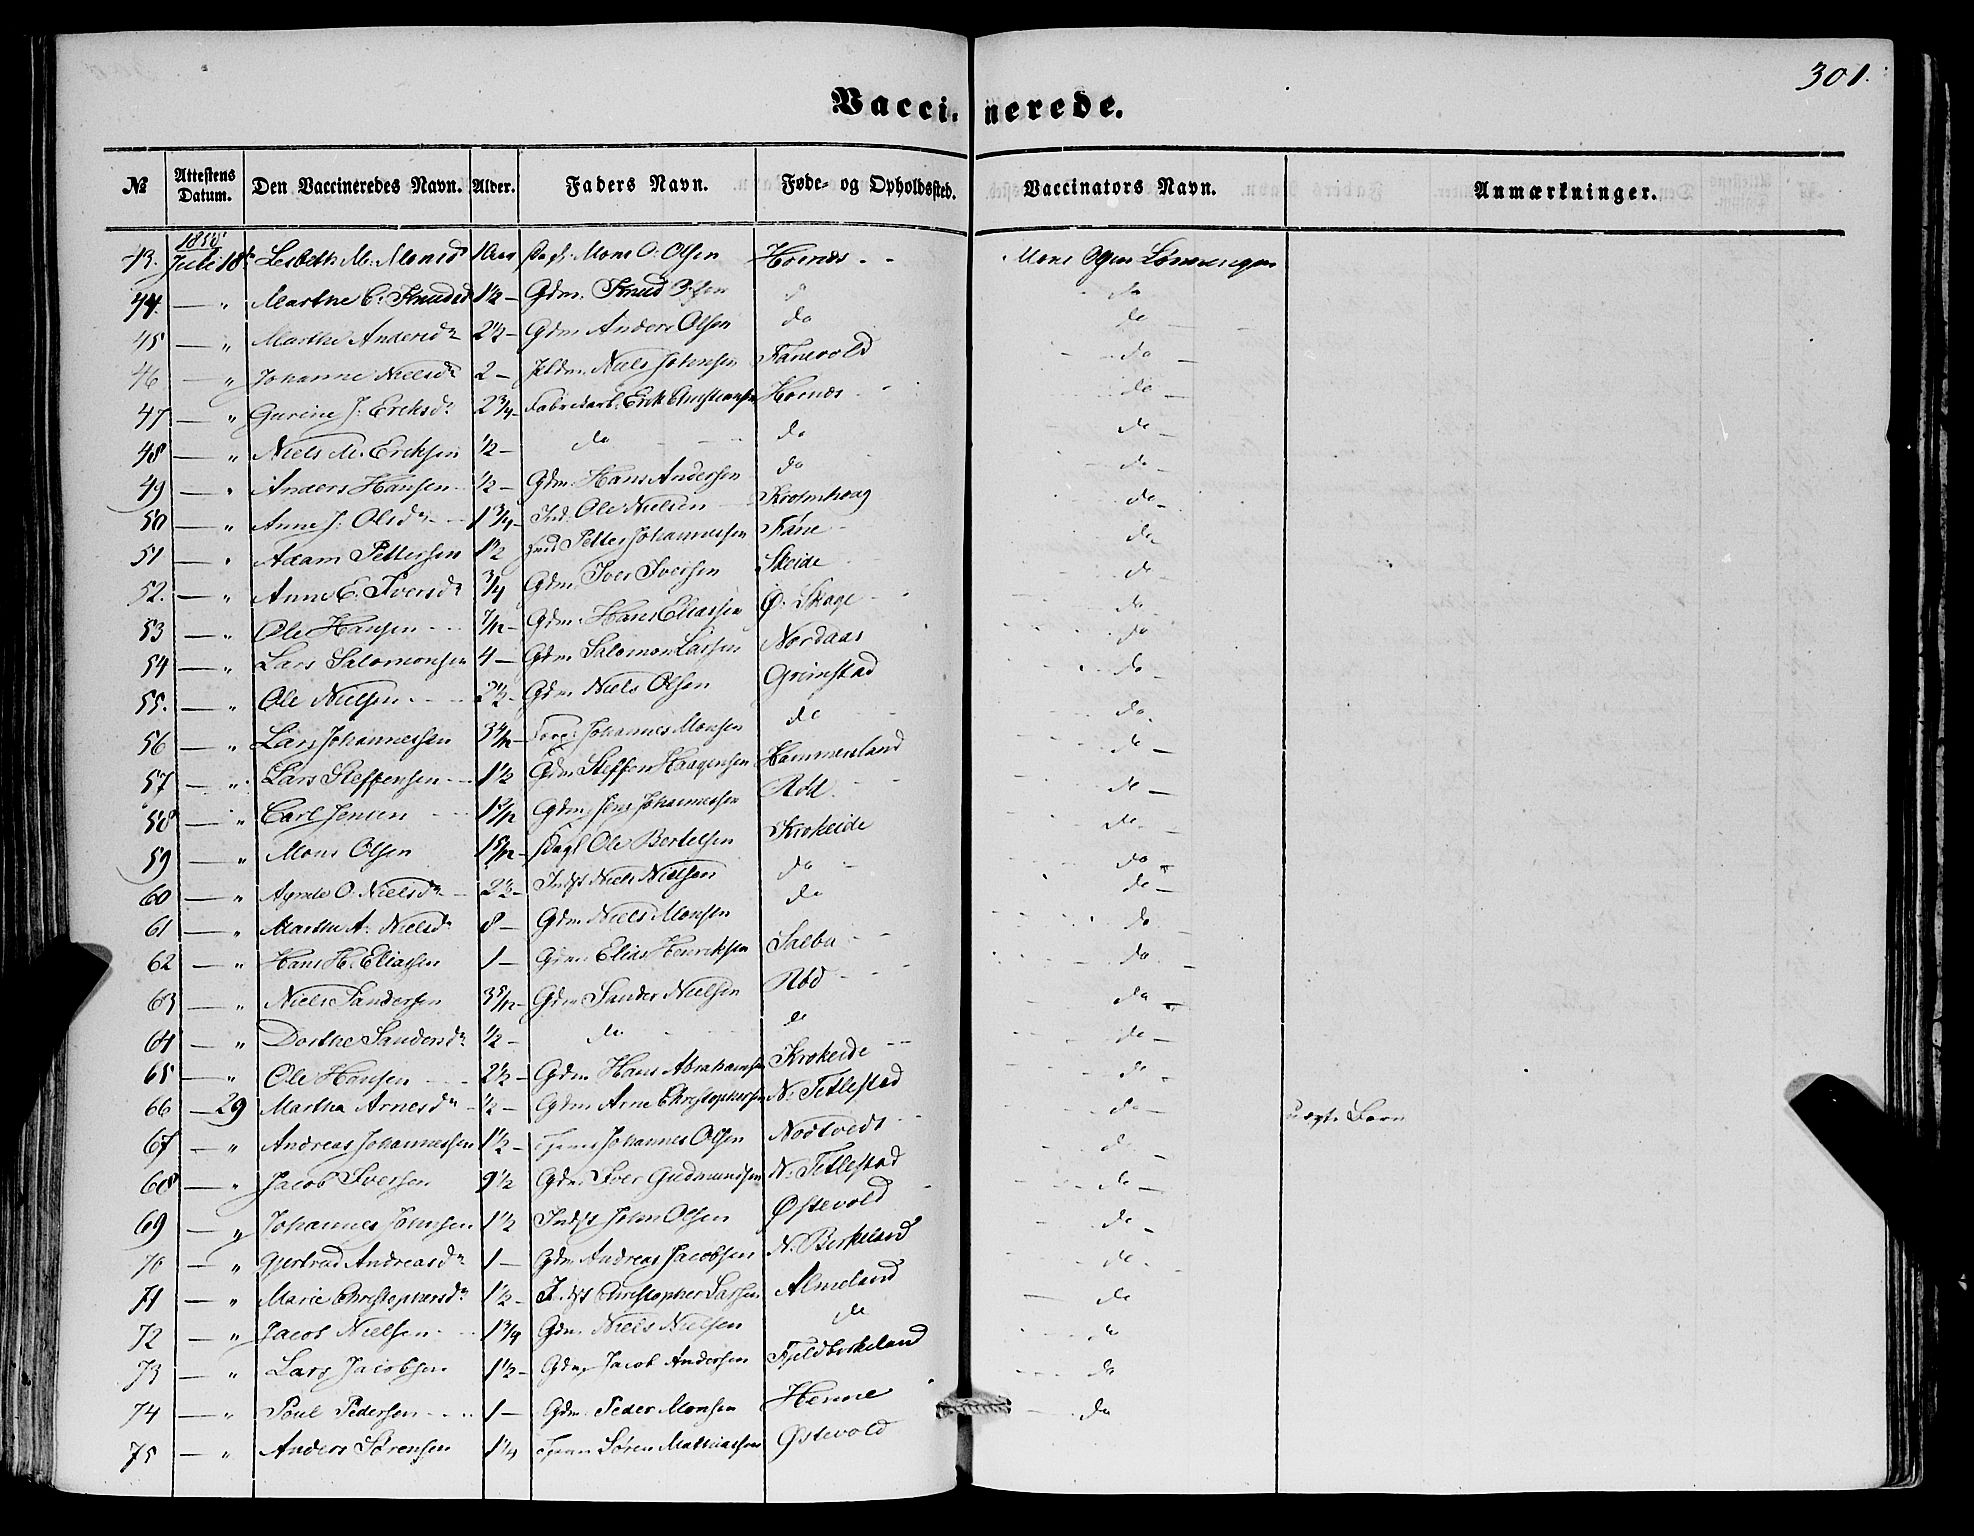 301.
Vaccinerede.
№ Attestens Datum. Den Vaccineredes Navn. Alder. Faders Navn. Føde- og Opholdssted. Vaccinators Navn. Anmærkninger.
1858
43. Juli 18 Lisbeth M. Monsdr 10 Mons O. Olsen Hornæs Mons
44. — " Marthe C. Knudsdr 1½ — Gdm. Knud do
45 — " Marthe Andersdr 2½ — Gdm Anders Olsen do do
46 — " Johanne Nielsdr 2 — Niels Johnsen Tanevold do
47 — " Gurine J. Ericksdr 2¾ — Erik Christiansen Hornæs do
48 — " Niels M. Ericksen ½ — do do do
49 — " Anders Hansen ½ — Gdm. Hans Andersen do do
50 — " Anne J. Olsdr 1¾ — Ind. Ole Nielsen do
51 — " Adam Pettersen 1½ Petter Johannessen do
52. — " Anne E. Iversdr ¾ Gdm. Iver Iversen Skeide do
53 — " Ole Hansen 7/12 — Gdm. Hans Eliassen Ø. Skage do
54 — " Lars Salomonsen 4 — Gdm Salomon Larsen Nordaas do
55. — " Ole Nielsen 2½ — Gdm Niels Olsen Grimstad do
56 — " Lars Johannessen Johannes Monsen do do
57 — " Lars Steffensen 1½ Gdm Steffen Haagensen Hammersland do
58 — " Carl Jensen Gdm. Jens Johannessen Röd do
59 — " Mons Olsen 1 5/12 — Ole Bertelsen Krokeide do
60 — " O. Nielsdr 2½ — Indst Niels Nielsen do do
61 — " Marthe A. Nielsdr 8 — Gdm Niels Monsen do do
62 — " Hans H. Eliassen 1 — Gdm Elias Henriksen Salbu do
63 — " Niels Sandersen 3 5/12 — Gdm Sander Nielsen Röd do
64 — " Dorthe Sandersdr ½ — do do do
65 — " Ole Hansen 2½ — Gdm Hans Abrahamsen Krokeide do
66 — 29 Martha Arnesdr ½ — Gdm Arne Christophersen N. Titlestad do uægte Barn
67 — " Andreas Johannessen 1½ — Johannes Olsen Nodtvedt do
68 — " Jacob Iversen 9½ Gdm Iver Gudmundsen N. Titlestad do
69 — " Johannes Johnsen 1½ Indst John Olsen Østevold do
70 — " Gjertrud Andreasdr 1 — Gdm Andreas Jacobsen N. Birkeland do
71 — " Marie Christophersdr 1½ — Indst Christopher Larsen Almeland do
72 — " Jacob Nielsen 1¾ Gdm. Niels Nielsen do do
73 — " Lars Jacobsen 1½ — Gdm Jacob Andersen Fjeldbirkeland do
74 — " Poul Pedersen 1 — Gdm. Peder Monsen Henne do
75 — " Anders Sörensen 1¼ Sören Mathiassen Østevold